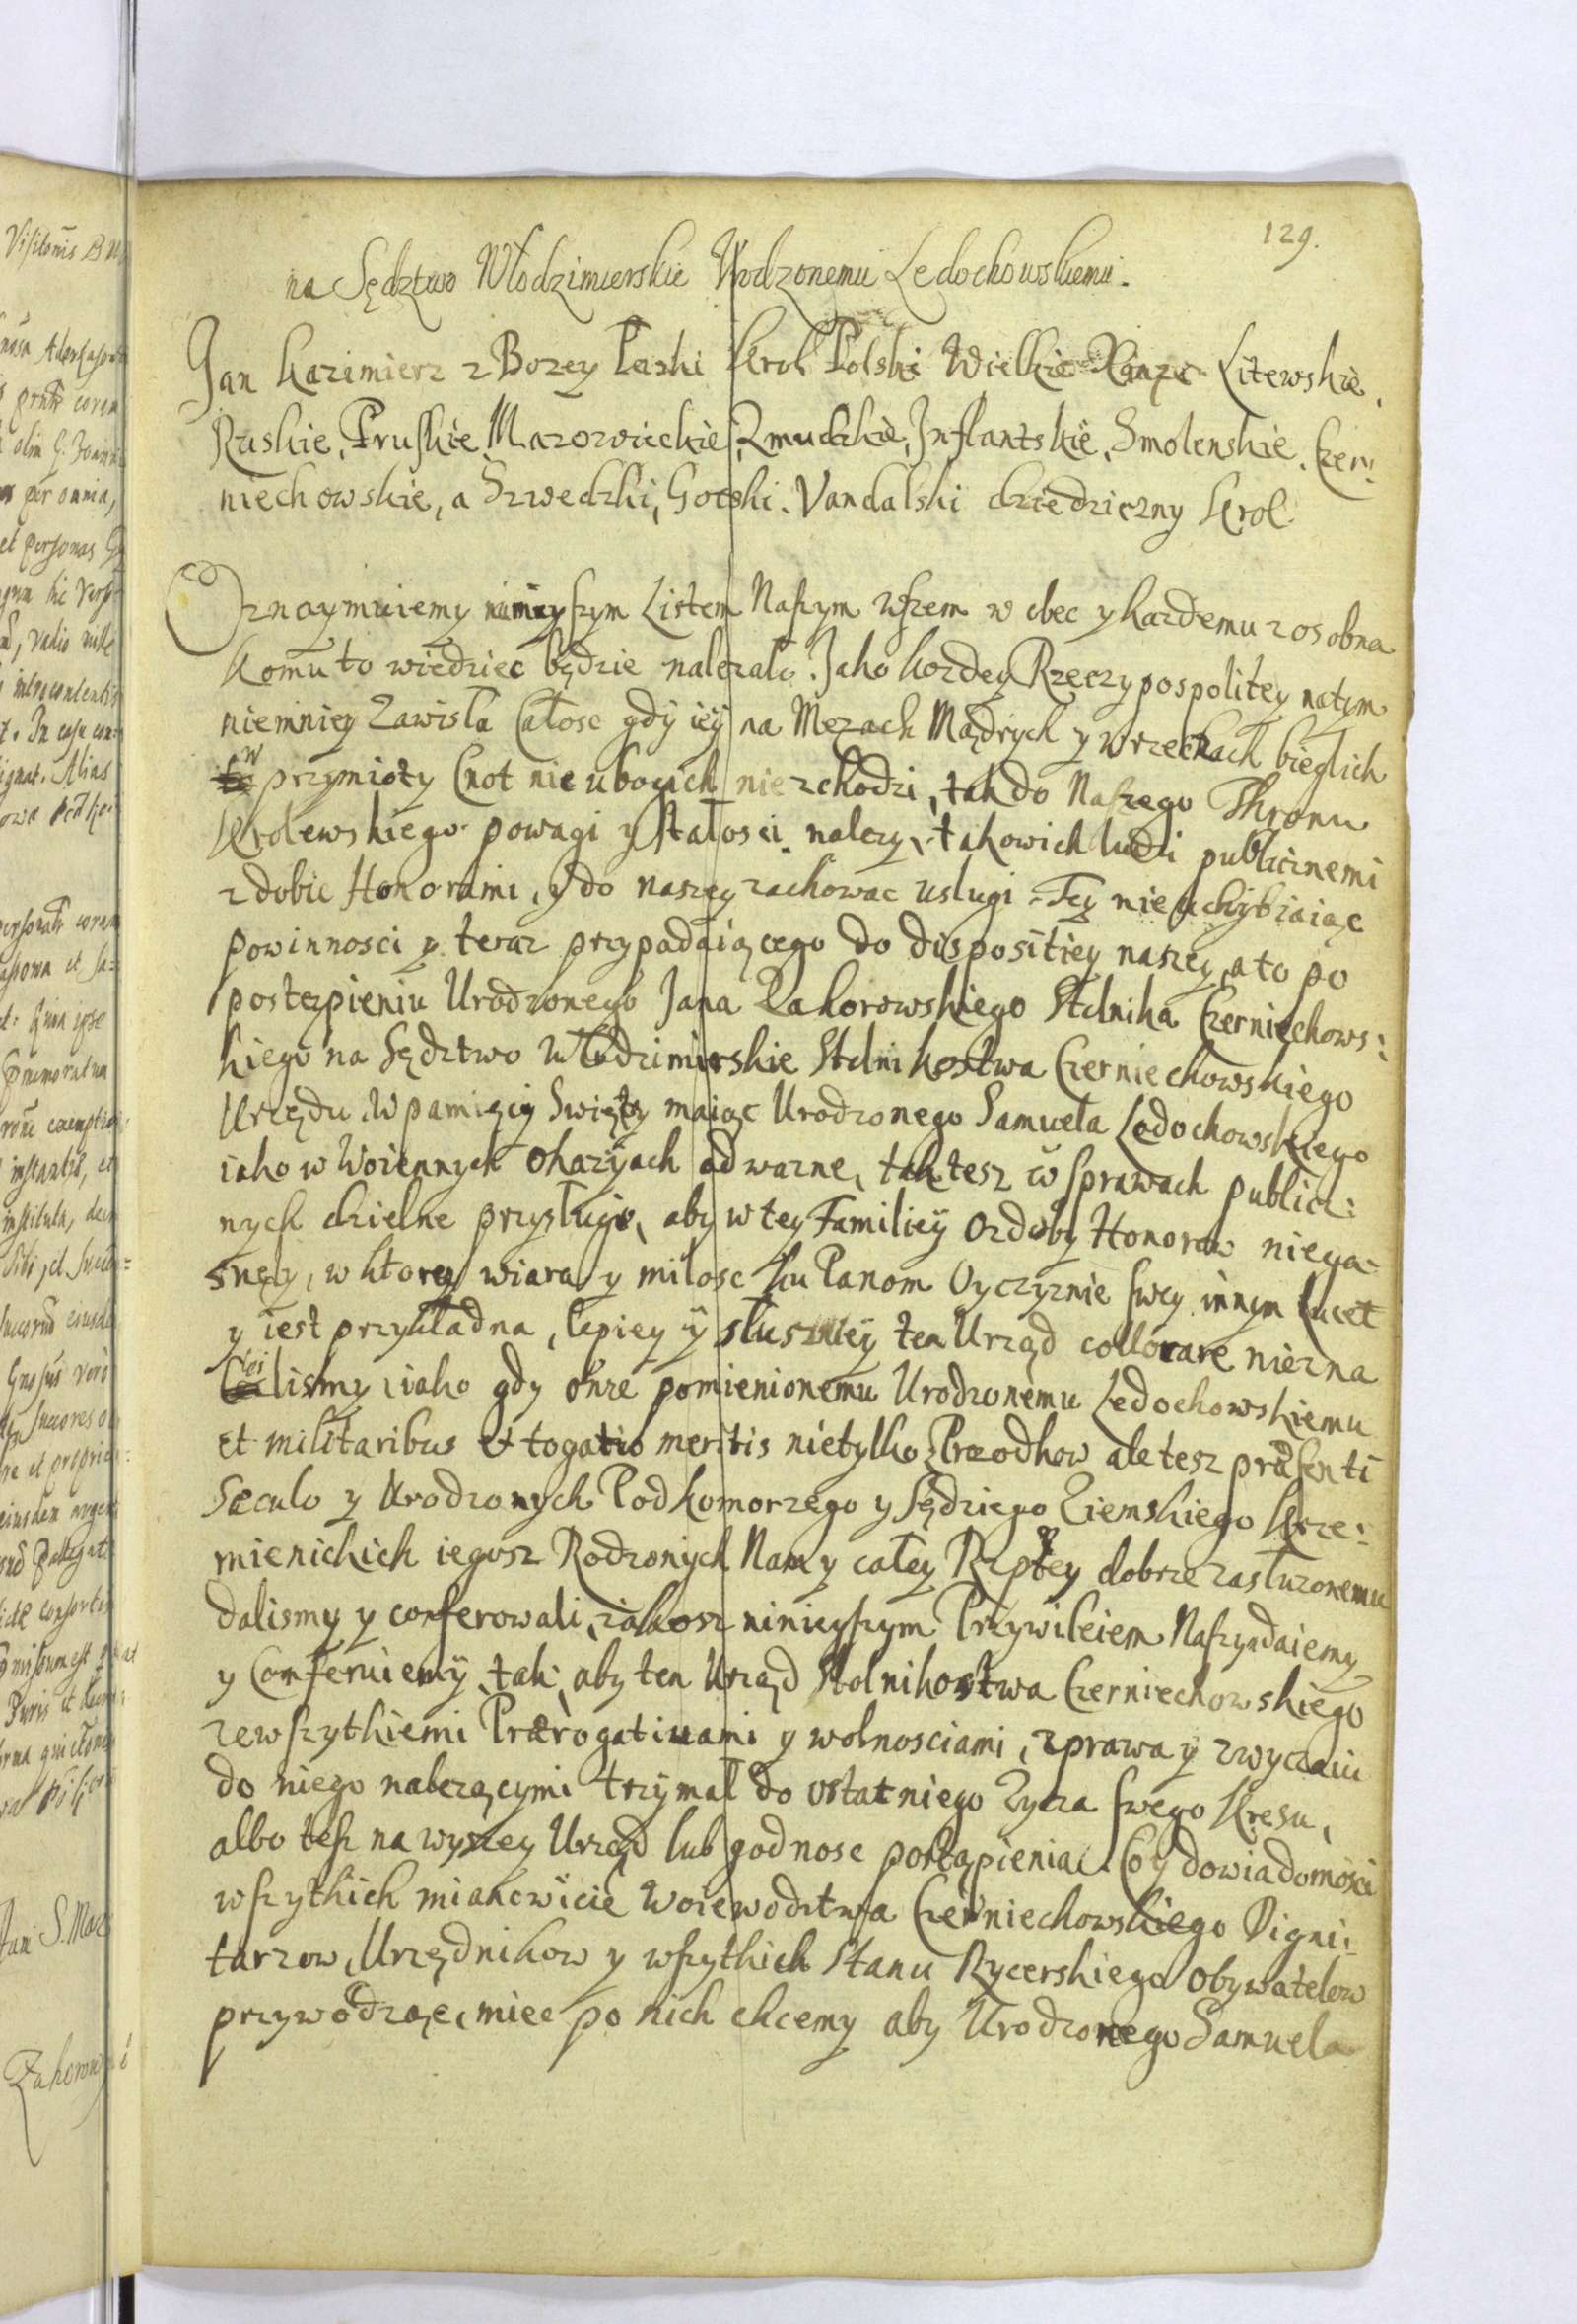 129.
na Sędztwo Włodzimierskie Urodzonemu Ledochowskiemu.
Jan Kazimierz z Bozey Łaski Krol Polski Wielkie Xiąze Litewskie,
Ruskie, Pruskie, Mazowieckie, Zmudzkie, Inflantskie, Smolenskie, Czer:
niechowskie, a Szwedzki, Gotski, Vandalski dziedziczny Krol
Oznaymuiemy ninieyszym Listem Naszym wszem w obec y kazdemu zosobna
komu to wiedziec będzie nalezało. Jako kozdey Rzeczypospolitey natym
niemniey Zawisla Całosc gdÿ ieÿ na Męzach Mądrych y w rzeczach bieglich
w przymioty Cnot nie ubogich nie zchodzi, tak do Naszego Thronu
Krolewskiego powagi y stałosci nalezy, takowich ludzi publicznemi
zdobic Honorami, y do naszey zachowac uslugi. Tey nie uchÿbiaiąc
powinnosci y teraz przypadaiącego do dispositiey naszey, a to po
postęmpieniu Urodzonego Jana Zahorowskiego Stolnika Czerniechows:
kiego na Sędztwo Włodzimirskie Stolnikostwa Czerniechowskiego
Urzędu, W pamięci Swięzey maiąc Urodzonego Samuela Ledochowskiego
iako w Woiennych okazÿach odwazne, tak tesz w sprawach public:
nych dzielne przysługi, aby w tey Familieÿ ozdoby Honorow niega-
snęły, w ktorey wiara y miłosc ku Panom Oyczyznie swey innym lucet
y iest przykladna, lepiey ÿ słuszneÿ ten Urząd collocare niezna
lezlismy, iako gdy onze pomienionemu Urodzonemu Ledochowskiemu
et militaribus et togatis meritis nietylko Przodkow ale tesz præsenti
Sæculo y Urodzonych Podkomorzego y Sędziego Ziemskiego Krze:
mienickich iegosz Rodzonych Nam y całey Rzptey dobrze zasłuzonemu
dalismy y conferowali, iakosz ninieyszym Przywileiem Naszym daiemy
y Conferuiemÿ, tak, aby ten Urząd Stolnikostwa Czerniechowskiego
zewszytkiemi Prærogatiuami y wolnosciami, z prawa y zwyczaiu
do niego nalezącymi trzymał do ostatniego Zycia swego Kresu,
albo tesz na wyszey Urząd lub godnosc postąpienia. Co y dowiadomosci
wszytkich mianowicie Woiewodztwa Czerniechowskiego Digni:
tarzow, Urzędnikow y wszytkich Stanu Rycerskiego Obywatelow
przywodząc, miec po nich chcemy aby Urodzonego Samuela